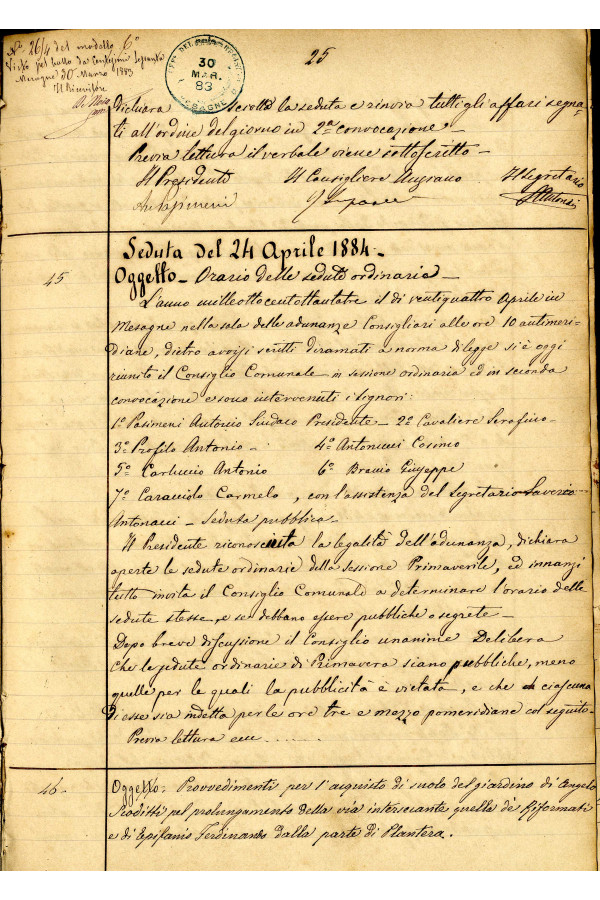 N.° 26/4 del modello 6°
Visto pel bollo da Centesimi Sessanta
Mesagne 30 Marzo 1883
Il Ricevitore
30
MAR.
83
25
Dichiara sciolta la seduta e rinvia tutti gli affari segna-
ti all'ordine del giorno in 2a convocazione -
Previa lettura il verbale viene sottoscritto -
Il Presidente Il Consigliere Anziano Il Segretario
Ant Pasimeni
45
Seduta del 24 Aprile 1884.
Oggetto - Orario delle sedute ordinarie -
L'anno milleottocentottantatre il dì ventiquattro Aprile in
Mesagne nella sala delle adunanze Consigliari alle ore 10 antimeri-
diane, dietro avvisi scritti diramati a norma di legge si è oggi
riunito il Consiglio Comunale in sessione ordinaria ed in seconda
convocazione e sono intervenuti i signori:
1° Pasimeni Antonio Sindaco Presidente - 2° Cavaliere Serafino -
3° Profilo Antonio - 4° Antonucci Cosimo
5° Carluccio Antonio 6° Bravio Giuseppe
7° Caracciolo Carmelo, con l'assistenza del Segretario Saverio
Antonacci - Seduta pubblica -
Il Presidente riconosciuta la legalità dell'adunanza, dichiara
aperte le sedute ordinarie della sessione Primaverile, ed innanzi
tutto invita il Consiglio Comunale a determinare l'orario delle
sedute stesse, e se debbano essere pubbliche o segrete -
Dopo breve discussione il Consiglio unanime Delibera
Che le sedute ordinarie di Primavera siano pubbliche, meno
quelle per le quali la pubblicità è vietata, e che ciascuna
di esse sia indetta per le ore tre e mezzo pomeridiane col seguito -
Previa lettura ecc ........
46
Oggetto: Provvedimenti per l'acquisto di suolo del giardino di Angelo
Scoditti pel prolungamento della via intersecante quella de' Riformati
e di Epifanio Ferdinando dalla parte di Plantera.